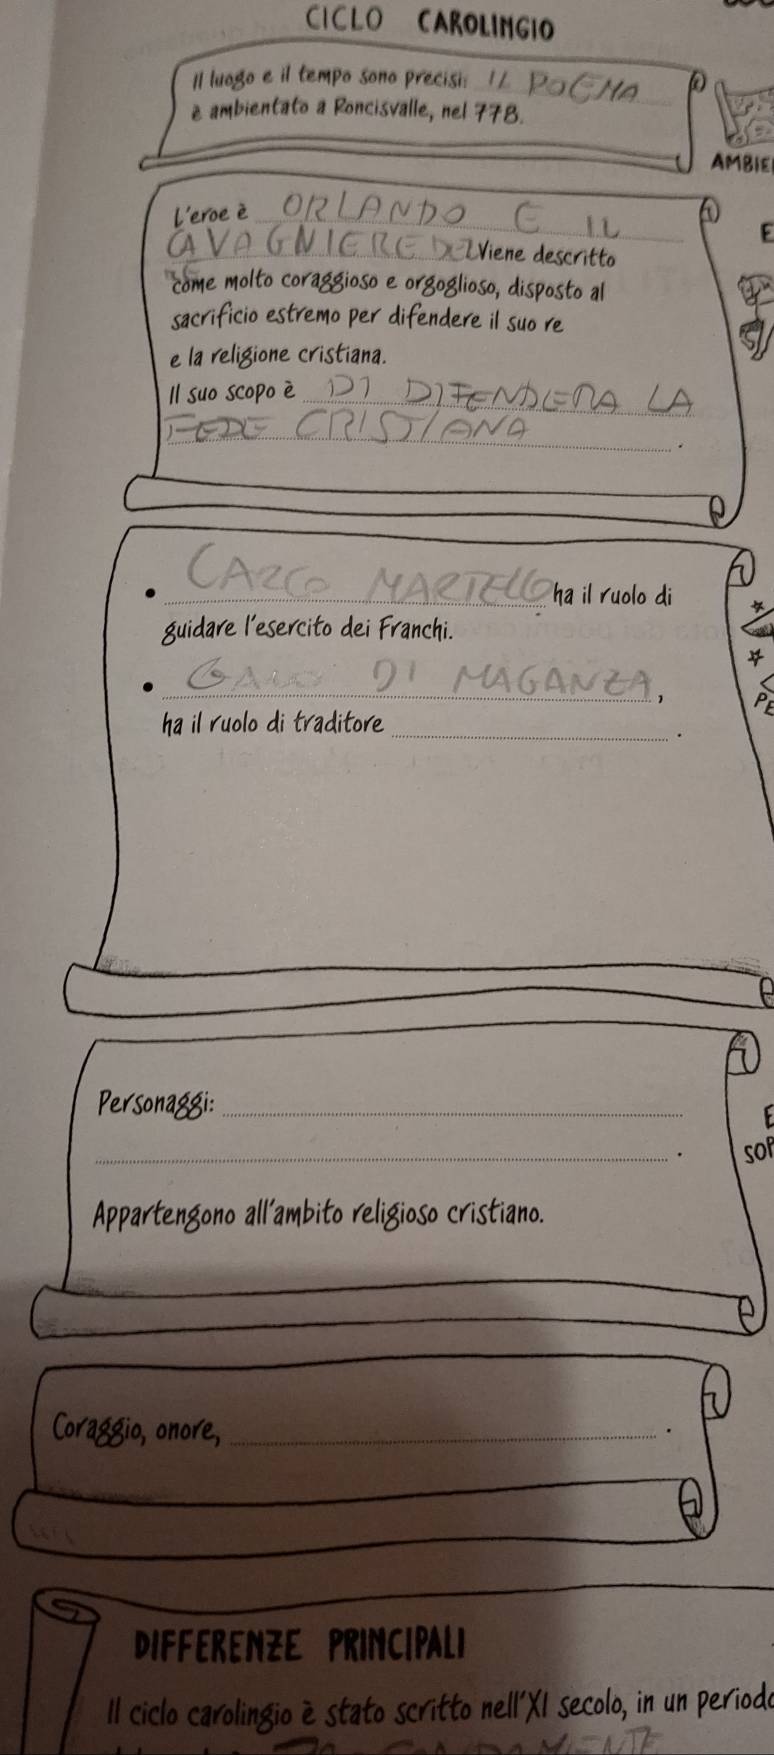 CICLO CAROLINGIO
Il luogo e il tempo sono precisi: IL POEMA
è ambientato a Roncisvalle, nel 778.
AMBIE
L'eroe è ORLANDO E IL
CAVAGNIERE DEL Viene descritto
come molto coraggioso e orgoglioso, disposto al
sacrificio estremo per difendere il suo re
e la religione cristiana.
Il suo scopo è DI DIFENDERA LA
FEDE CRISTIANA.
• CARLO MARTELLO ha il ruolo di
guidare l'esercito dei Franchi.
• GANO DI MAGANZA,
ha il ruolo di traditore.
PE
Personaggi:
SOP
Appartengono all'ambito religioso cristiano.
Coraggio, onore,
DIFFERENZE PRINCIPALI
Il ciclo carolingio è stato scritto nell'XI secolo, in un periodo